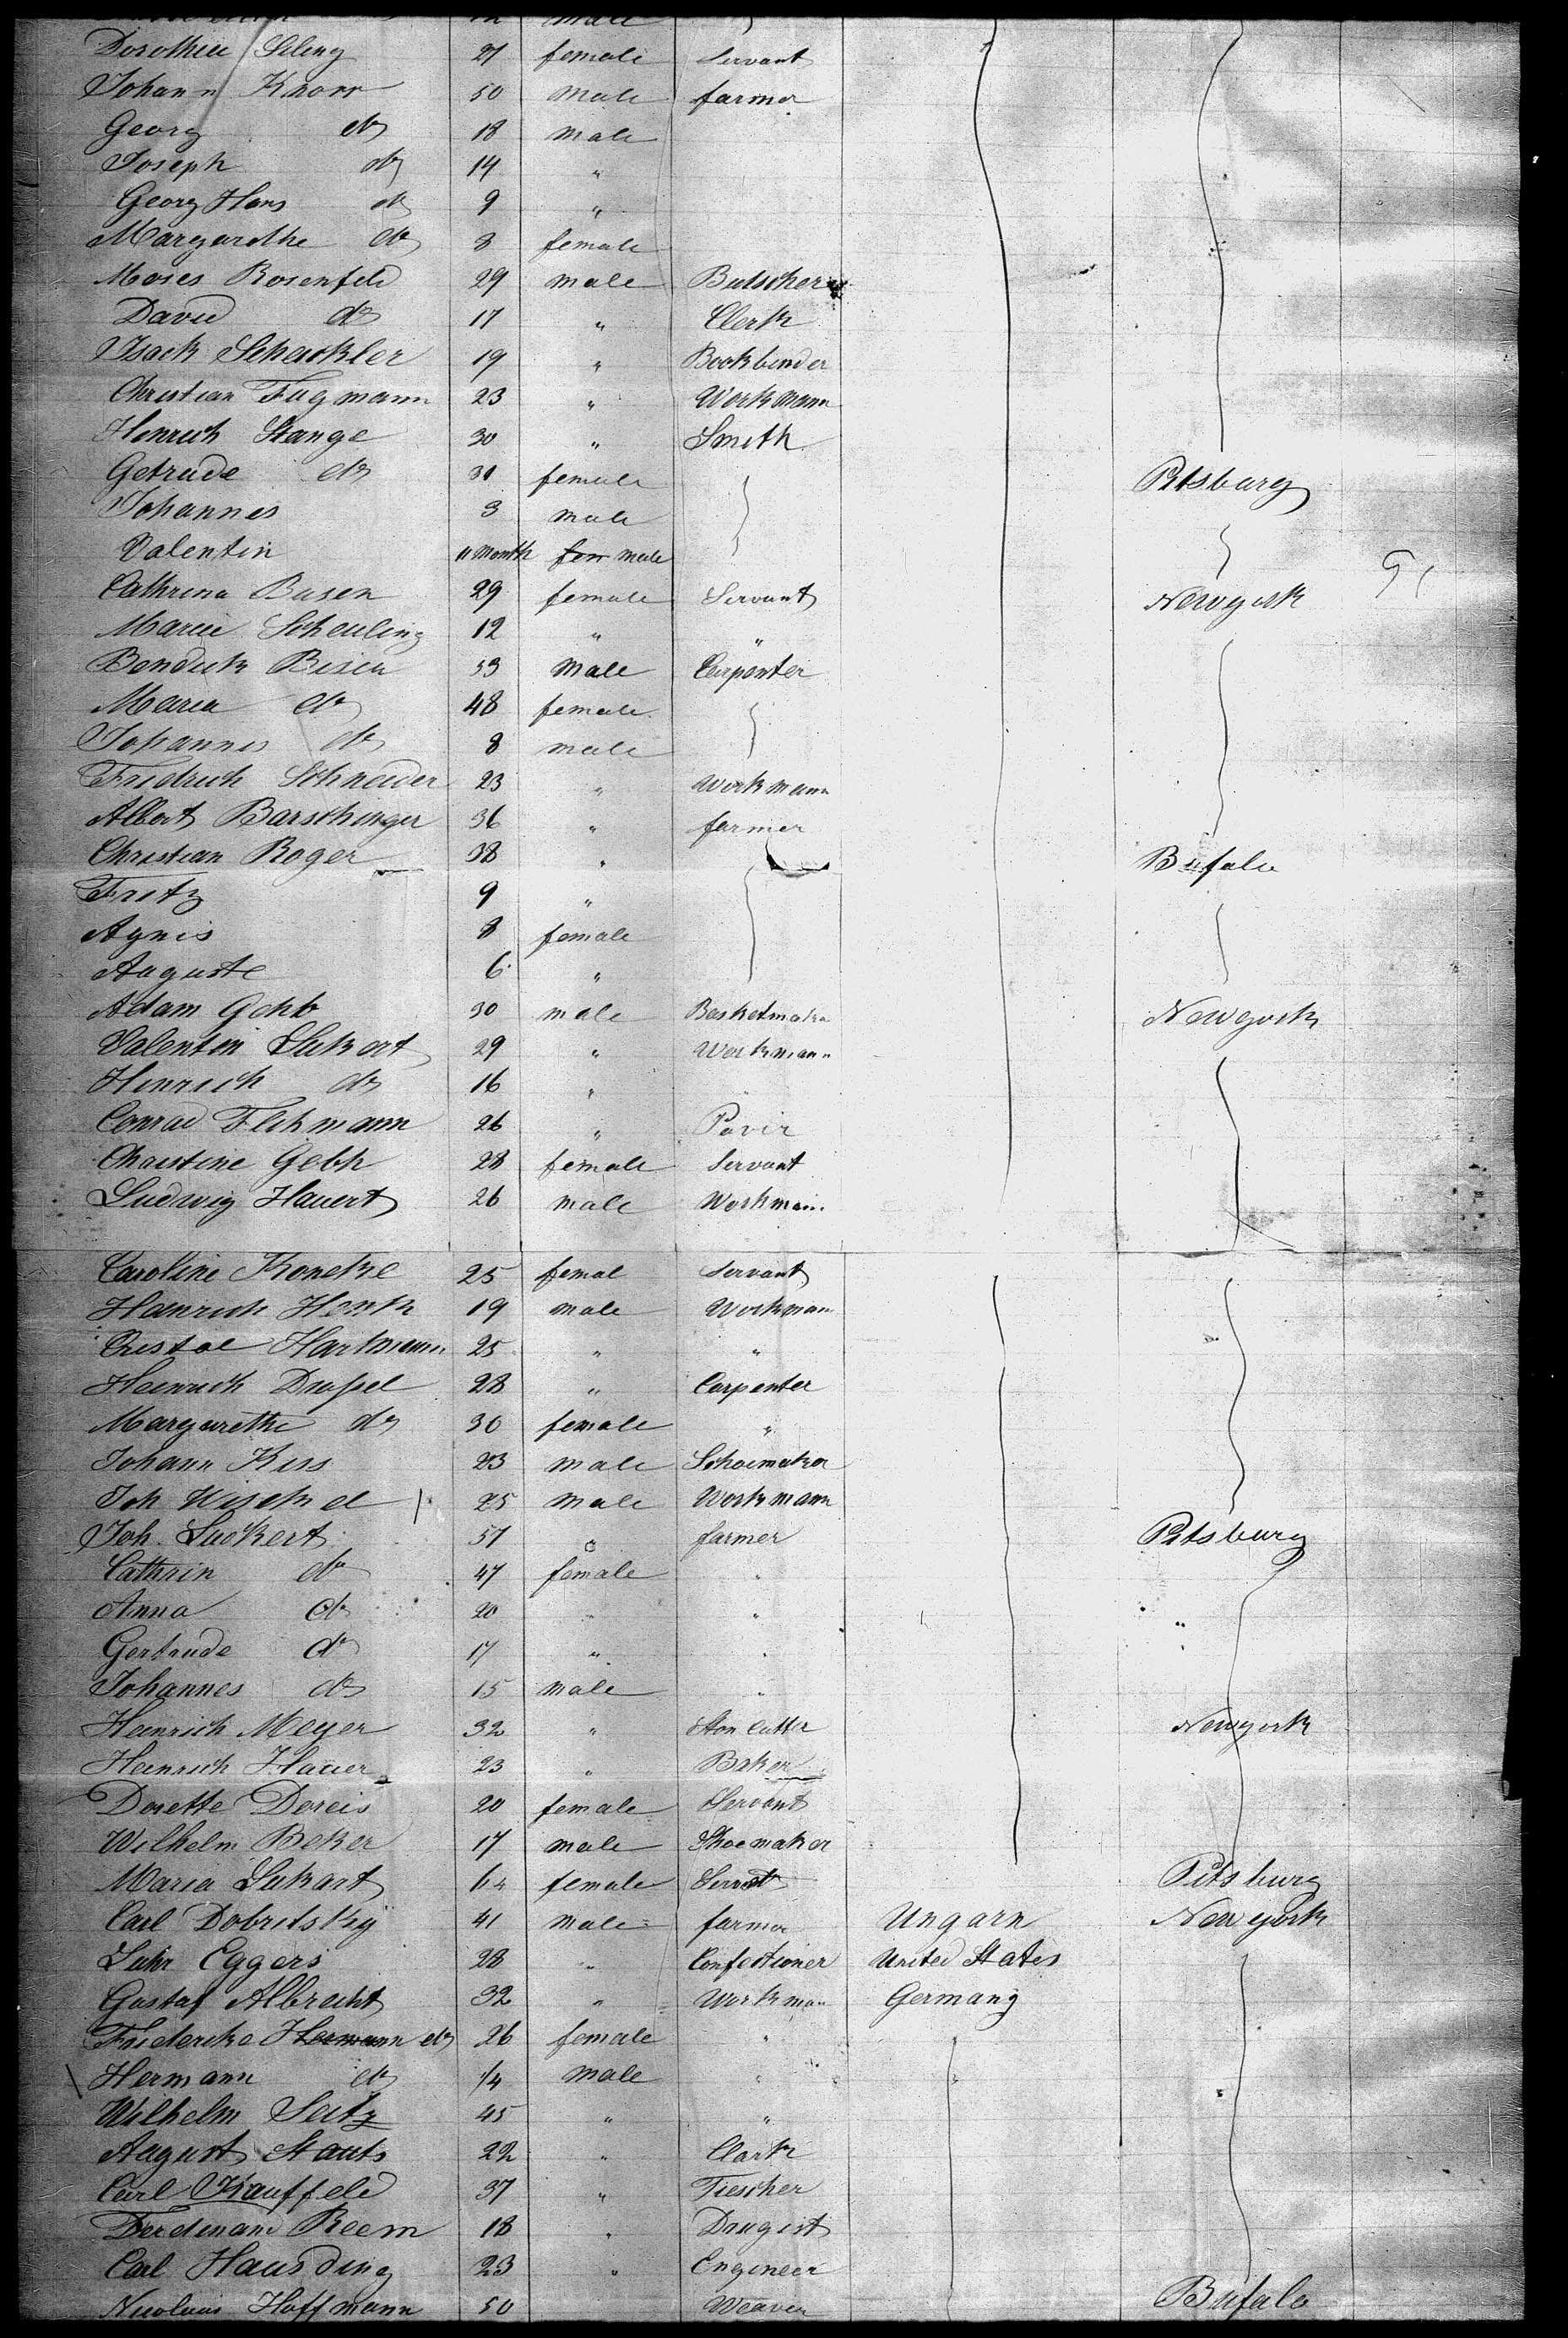 Dorothea Seling 27 female Servant
Johann Knorr 50 male farmer
Georg do 18 male
Joseph do 14 "
Georg Hans do 9 "
Margarethe do 8 female
Moses Rosenfeld 29 male Butscher
David do 17 " Clerk
Isack Schackler 19 " Bookbinder
Christian Fugmann 23 " Workmann
Henrich Stange 30 " Smith
Getrude do 31 female Pitsburg
Johannes 3 male
Valentin 11 month fem male
Cathrina Basen 29 female Servant Newyork
Marie Scheuling 12 " "
Bendick Bisen 53 Male Carpenter
Maria do 48 female
Johannes do 8 male
Fridrich Schneider 23 " Workmann
Albert Barschinger 36 " farmer
Christian Roger 38 " Bufalo
Fritz 9 "
Agnis 8 female
Auguste 6 "
Adam Gehb 30 male Basketmaker Newyork
Valentin Lukert 29 " Workmann
Henrich do 16 "
Conrad Flehmann 26 " Pavir
Christine Gebh 28 female Servant
Ludwig Hauert 26 male Workman
Caroline Koneke 25 femal Servant
Heinrich Henk 19 male Workman
Cristoe Hartmann 25 " "
Heinrich Drussel 28 " Carpenter
Margarethe do 30 female "
Johann Kiss 23 male Schoemaker
Joh Wischel 25 male Workmann
Joh. Luckert 57 " farmer Pitsburg
Cathrin do 47 female "
Anna do 20 " " "
Gertrude do 17 " "
Johannes do 15 male "
Heinrich Meyer 32 " Ston Cutter Newyork
Heinrich Hauer 23 " Baker
Dorette Doreis 20 female Servant
Wilhelm Beker 17 male Shoemaker
Maria Lukart female Servat Pitsburg
Carl Dobritskig 41 male farmer Ungarn New york
Luhr Eggers 28 " Confectioner United States
Gustaf Albrecht 32 " Workman Germany
Friedericke Hermann do 26 female "
Hermann do 1/4 male "
Wilhelm Seitz 45 " "
August Stauts 22 " Clark
Carl Kauffeld 37 " Tiescher
Ferdinand Reem 18 " Drugist
Carl Hausding 23 " Engineer
Nicolaus Hoffmann 50 Weaver Bufalo